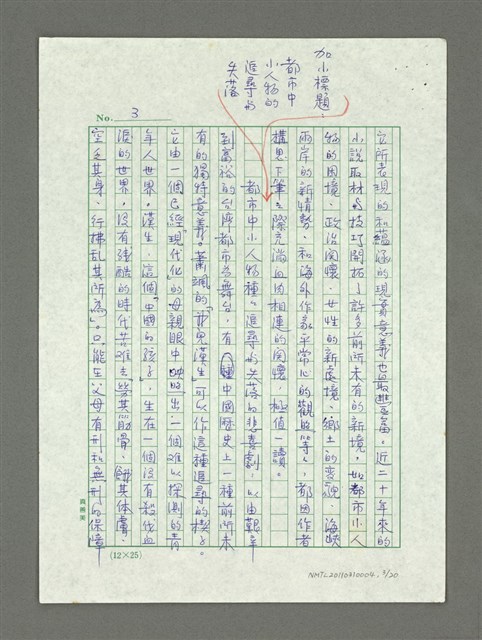 加小標題：
都市中
小人物的
追尋與
失落
No. 3
它所表現的和蘊涵的現實意義也最豐富。近二十年來的
小說取材與技巧開拓了許多前所未有的新境。如都市小人
物的困境、政治關懷、女性的新處境、鄉土的變貌、海峽
兩岸的新情勢、和海外作家平常心的觀照等，都因作者
構思下筆之際充滿血肉相連的關懷，極值一讀。
都市中小人物種種追尋與失落的悲喜劇，以由艱辛
到富裕的台灣都市為舞台，有中國歷史上一種前所未
有的獨特意義。蕭颯的「我兒漢生」可以作這種追尋的楔子。
它由一個已經現代化的母親眼中映照出一個難以探測的青
年人世界。漢生，這個「中國的孩子」，生在一個沒有殺伐血
淚的世界，沒有殘酷的時代苦難去「勞其筋骨，餓其體膚，
空乏其身，行拂亂其所為」。只能生父母有形和無形的保障
(12×25)
NMTL20110310004, 3/20